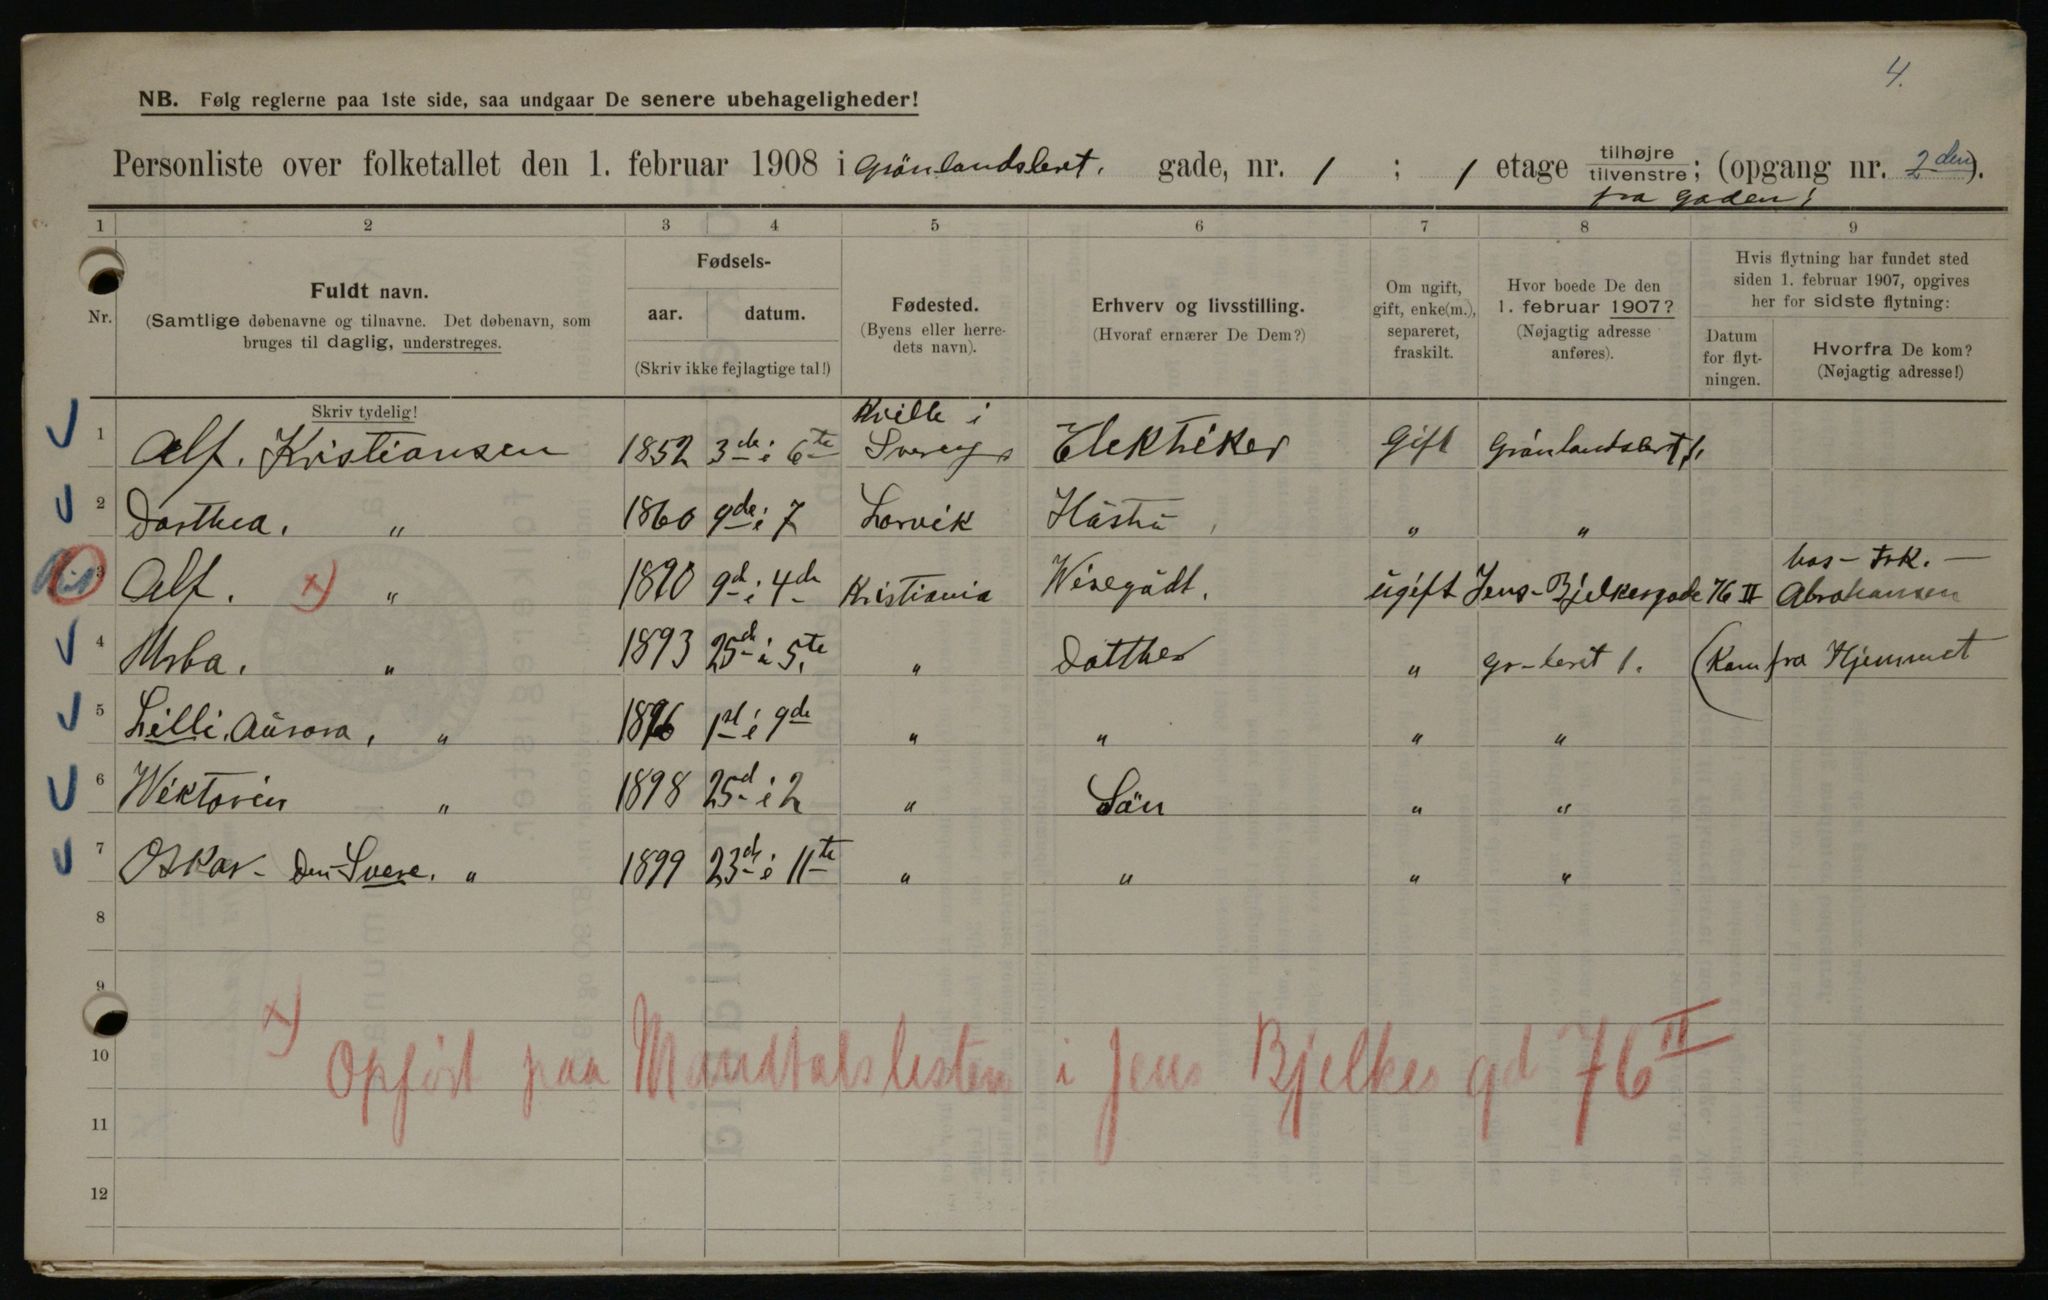 4.
NB. Følg reglerne paa 1ste side, saa undgaar De senere ubehageligheder!
Personliste over folketallet den 1. februar 1908 i Grönlandsleret. gade, nr. 1 ; 1 etage tilhøjre tilvenstre; (opgang nr. 2den).
fra gaden!
1 2 3 4 5 6 7 8 9
Nr.
Fuldt navn.
(Samtlige døbenavne og tilnavne. Det døbenavn, som
bruges til daglig, understreges.
Skriv tydelig!
Fødsels-
aar. datum.
(Skriv ikke fejlagtige tal!)
Fødested.
(Byens eller herre-
dets navn).
Erhverv og livsstilling.
(Hvoraf ernærer De Dem?)
Om ugift,
gift, enke(m.),
separeret,
fraskilt.
Hvor boede De den
1. februar 1907?
(Nøjagtig adresse
anføres).
Hvis flytning har fundet sted
siden 1. februar 1907, opgives
her for sidste flytning:
Datum
for flyt-
ningen.
Hvorfra De kom?
(Nøjagtig adresse!)
Kville i
1 Alf. Kristiansen 1852 3de i 6te Elektriker Gift Grönlandsleret 1.
2 Dorthea. " 1860 9de i 7 Larvik Hüstrü " "
hos Frk.
3 Alf. x) " 1890 9d i 4de Kristiania Wisegüdt. ügift Jens-Bjelkesgade 76 II Abrahamsen
4 " 1893 25d i 5te. " Datther " Gr-leret 1. (Kom fra Hjemmet
5 Lilli. Aürora, " 1896 1st i 9de " " " "
6 Wiktorin " 1898 25d i 2 " Sön " "
7 Oskar- Den-Svere. " 1899 23d i 11te " " " "
8
9
x) Opført paa Mandtalslisten i Jens Bjelkes gd 76 II
10
11
12